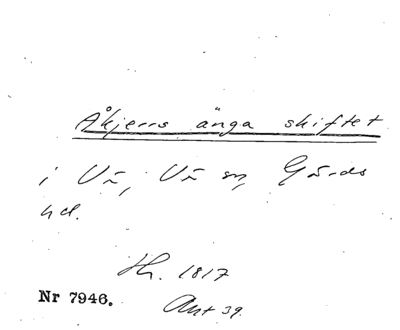 Åkjerrs änga skiftet
i Vä, Vä sn, Gärds
hd.
Hr. 1817
Nr 7946.
Akt 39.